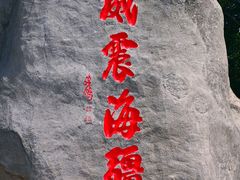 威震海疆